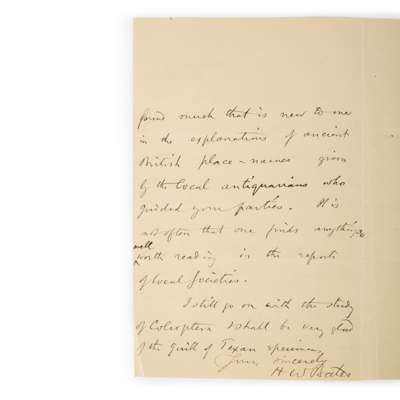 find much that is new to me
in the explanations of ancient
British place-names given
by the local antiquarians who
guided your parties. It is
not often that one finds anything
well
worth reading in the reports
of local Societies.
I still go on with the study
of Coleoptera & shall be very glad
of the quill of Texan specimens
Yours sincerely
H W Bates